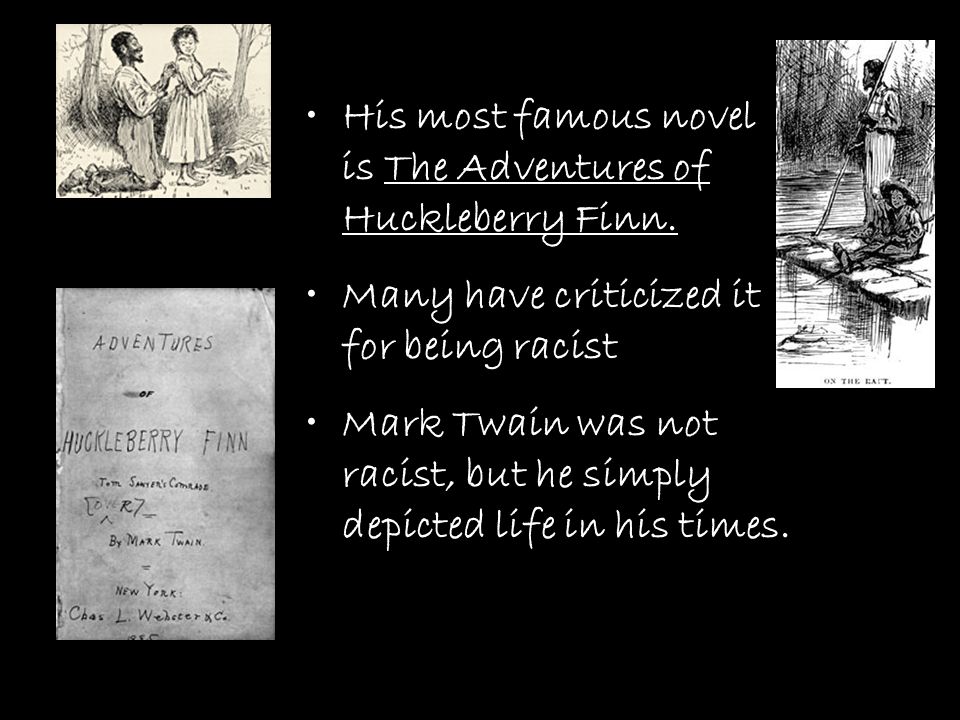 • His most famous novel
is The Adventures of
Huckleberry Finn.
• Many have criticized it
for being racist
• Mark Twain was not
racist, but he simply
depicted life in his times.
ADVENTURES
OF
HUCKLEBERRY FINN
TOM SAWYER'S COMRADE.
[OVER]
BY MARK TWAIN.
NEW YORK:
Chas L. Webster & Co.
1885
ON THE RAFT.